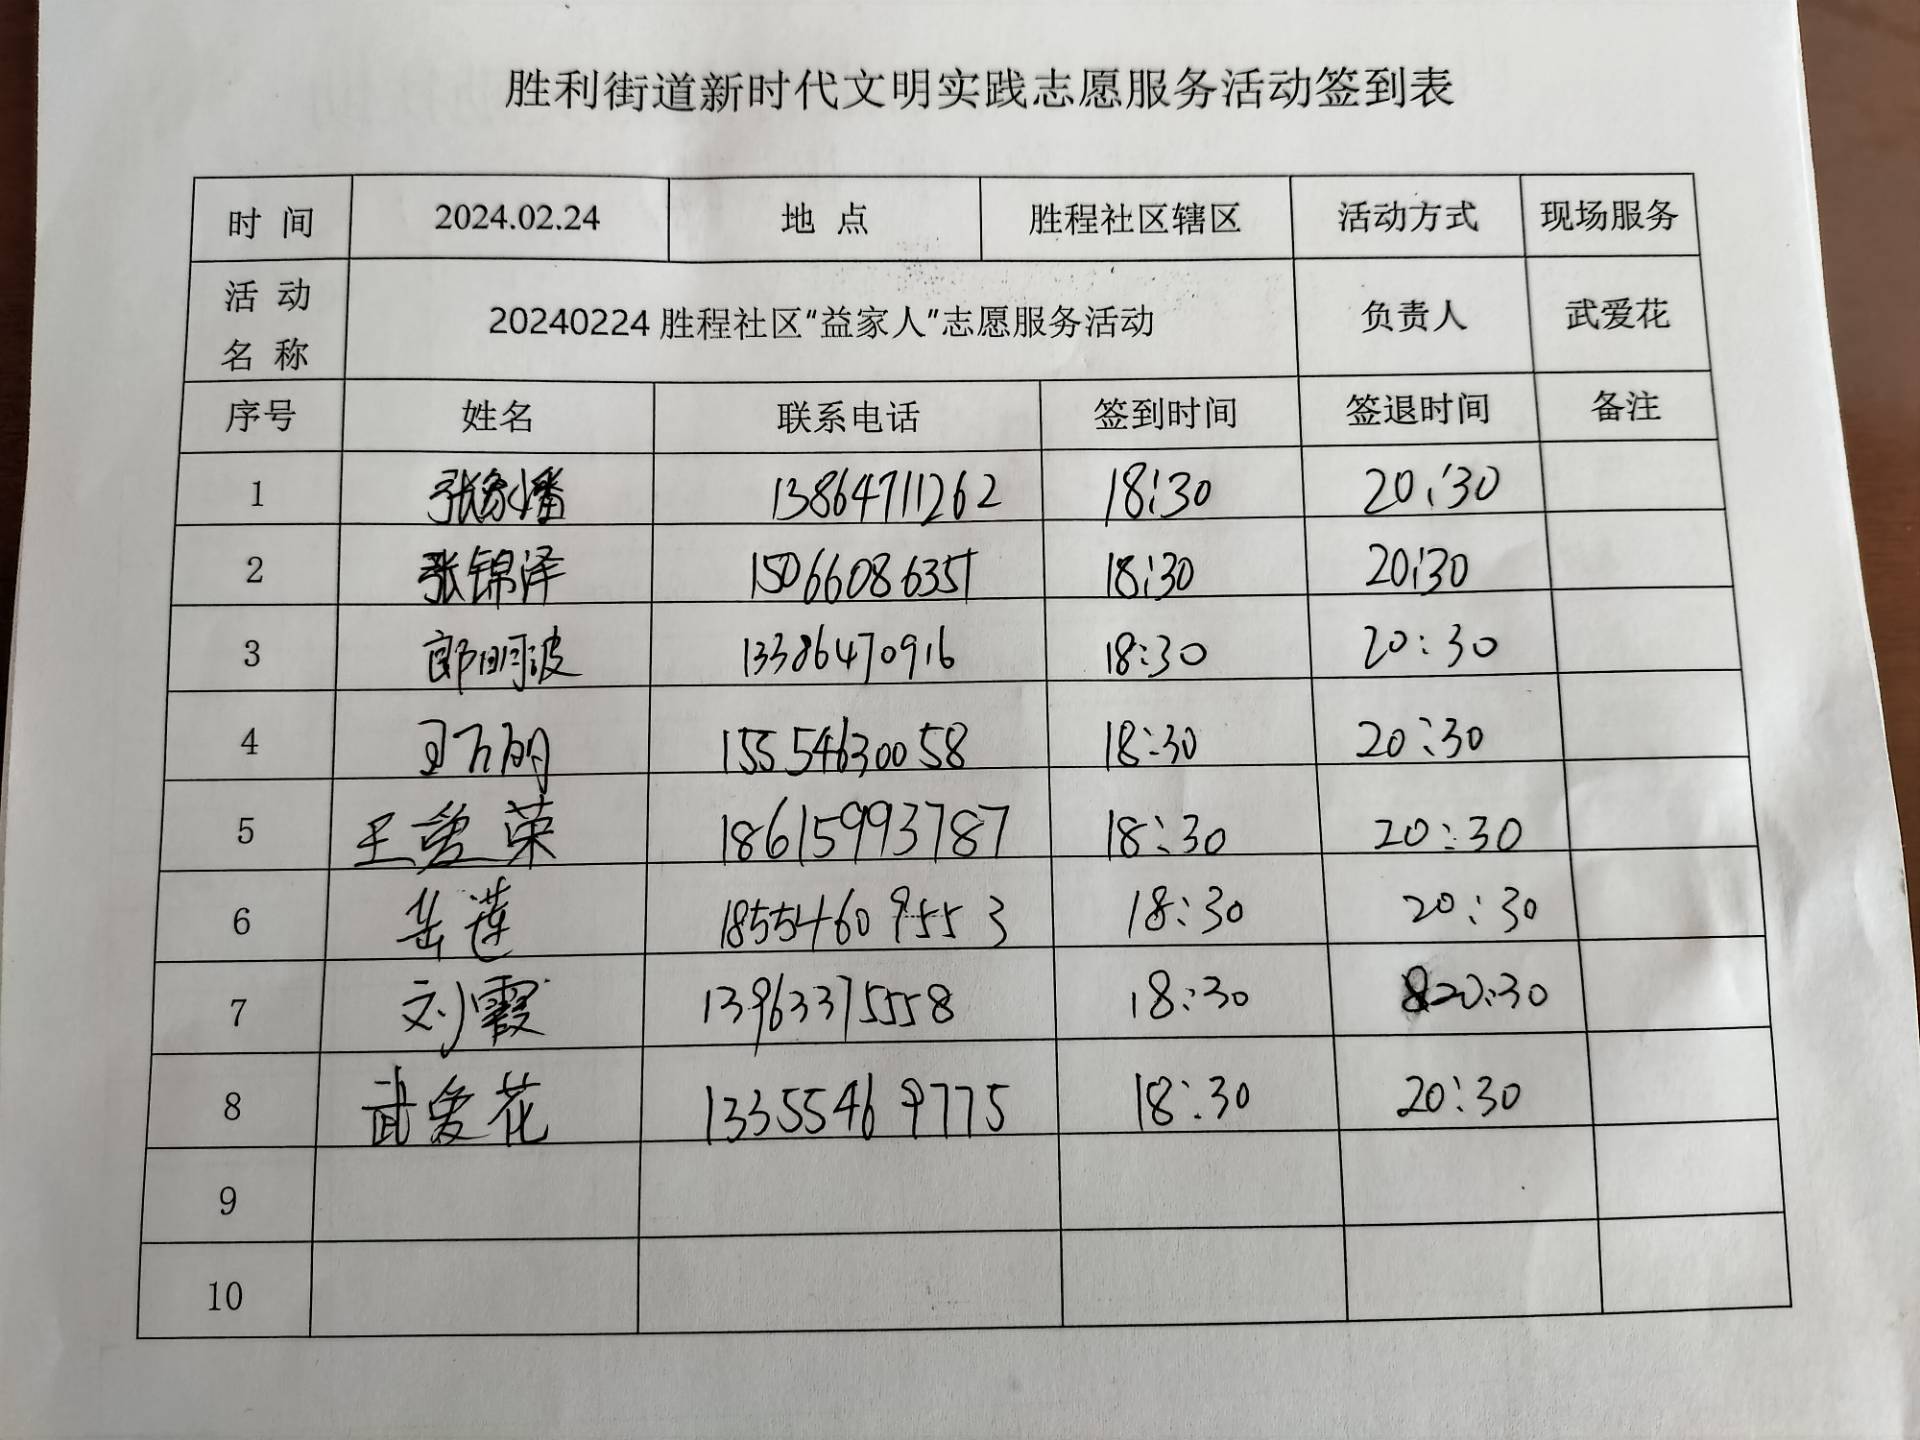 胜利街道新时代文明实践志愿服务活动签到表
时 间 2024.02.24 地 点 胜程社区辖区 活动方式 现场服务
活 动
名 称 20240224 胜程社区"益家人"志愿服务活动 负责人 武爱花
序号 姓名 联系电话 签到时间 签退时间 备注
1 13864711262 18:30 20:30
2 张锦泽 15066086351 18:30 20:30
3 郎明波 13386470916 18:30 20:30
4 15554630058 18:30 20:30
5 王爱荣 18615993787 18:30 20:30
6 岳莲 18554609553 18:30 20:30
7 刘霞 13963375558 18:30 20:30
8 武爱花 13355469775 18:30 20:30
9
10